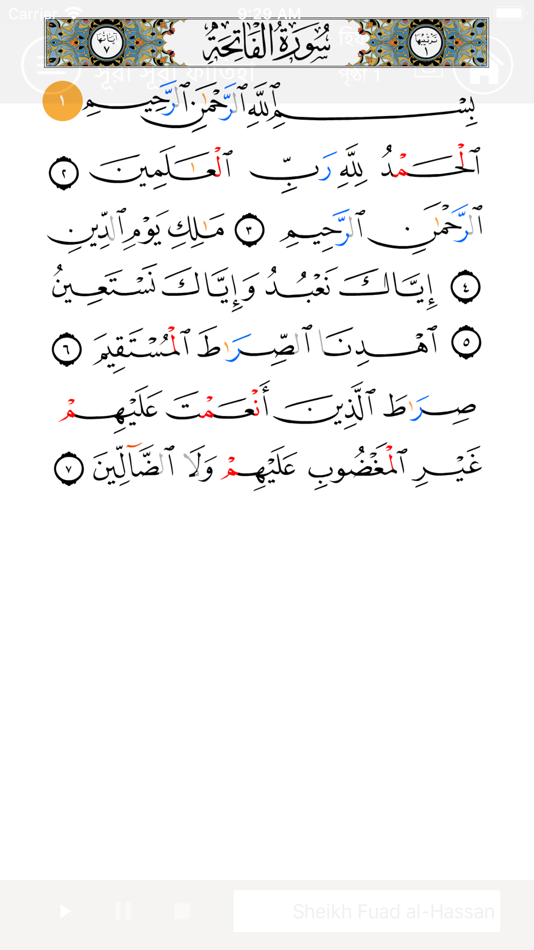 Carrier 9:29 AM
ترتيبها ١ سُورَةُ الْفَاتِحَةِ آياتها ٧
সূরা সূরা ফাতিহা পৃষ্ঠা 1
بِسْمِ ٱللَّهِ ٱلرَّحْمَٰنِ ٱلرَّحِيمِ ١
ٱلْحَمْدُ لِلَّهِ رَبِّ ٱلْعَٰلَمِينَ ٢
ٱلرَّحْمَٰنِ ٱلرَّحِيمِ ٣ مَٰلِكِ يَوْمِ ٱلدِّينِ
٤ إِيَّاكَ نَعْبُدُ وَإِيَّاكَ نَسْتَعِينُ
٥ ٱهْدِنَا ٱلصِّرَٰطَ ٱلْمُسْتَقِيمَ ٦
صِرَٰطَ ٱلَّذِينَ أَنْعَمْتَ عَلَيْهِمْ
غَيْرِ ٱلْمَغْضُوبِ عَلَيْهِمْ وَلَا ٱلضَّآلِّينَ ٧
Sheikh Fuad al-Hassan